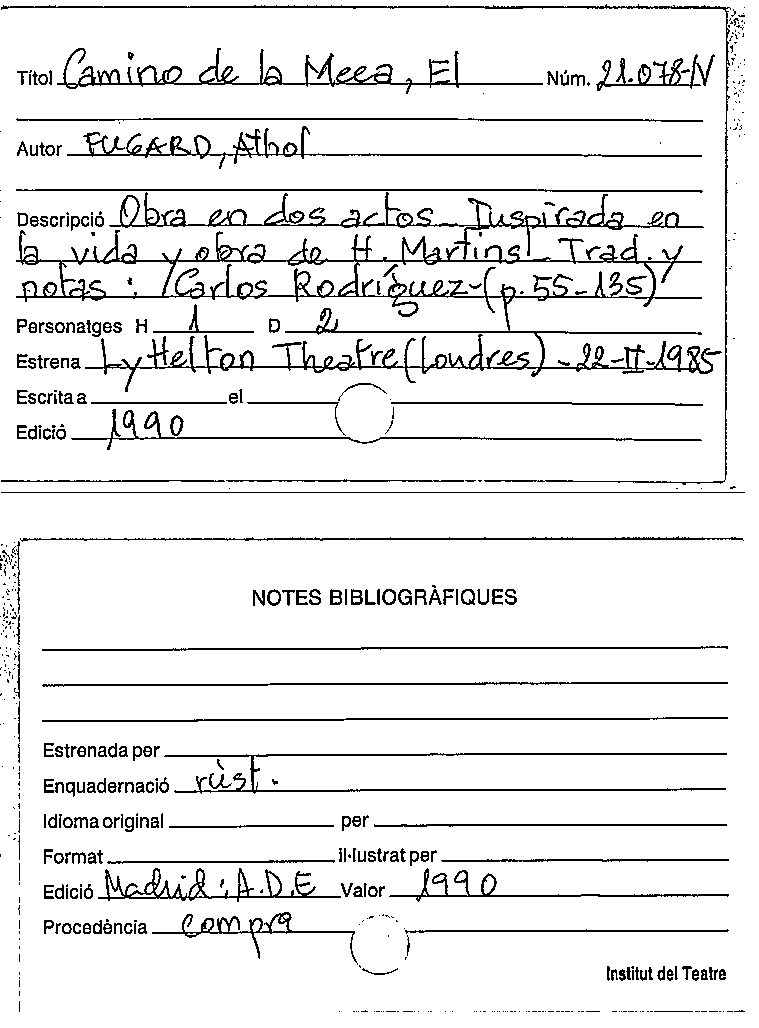 Títol Camino de la Meca, El Núm. 21.078-N
Autor FUGARD, Athol
Descripció Obra en dos actos. Inspirada en
la vida y obra de H. Martins. Trad. y
notas : Carlos Rodríguez-(p.55-135)
Personatges H 1 D 2
Estrena Lyttelton Theatre (Londres) - 22-II-1985
Escrita a el
Edició 1990
NOTES BIBLIOGRÀFIQUES
Estrenada per
Enquadernació rúst.
Idioma original per
Format il·lustrat per
Edició Madrid : A.D.E Valor 1990
Procedència compra
Institut del Teatre